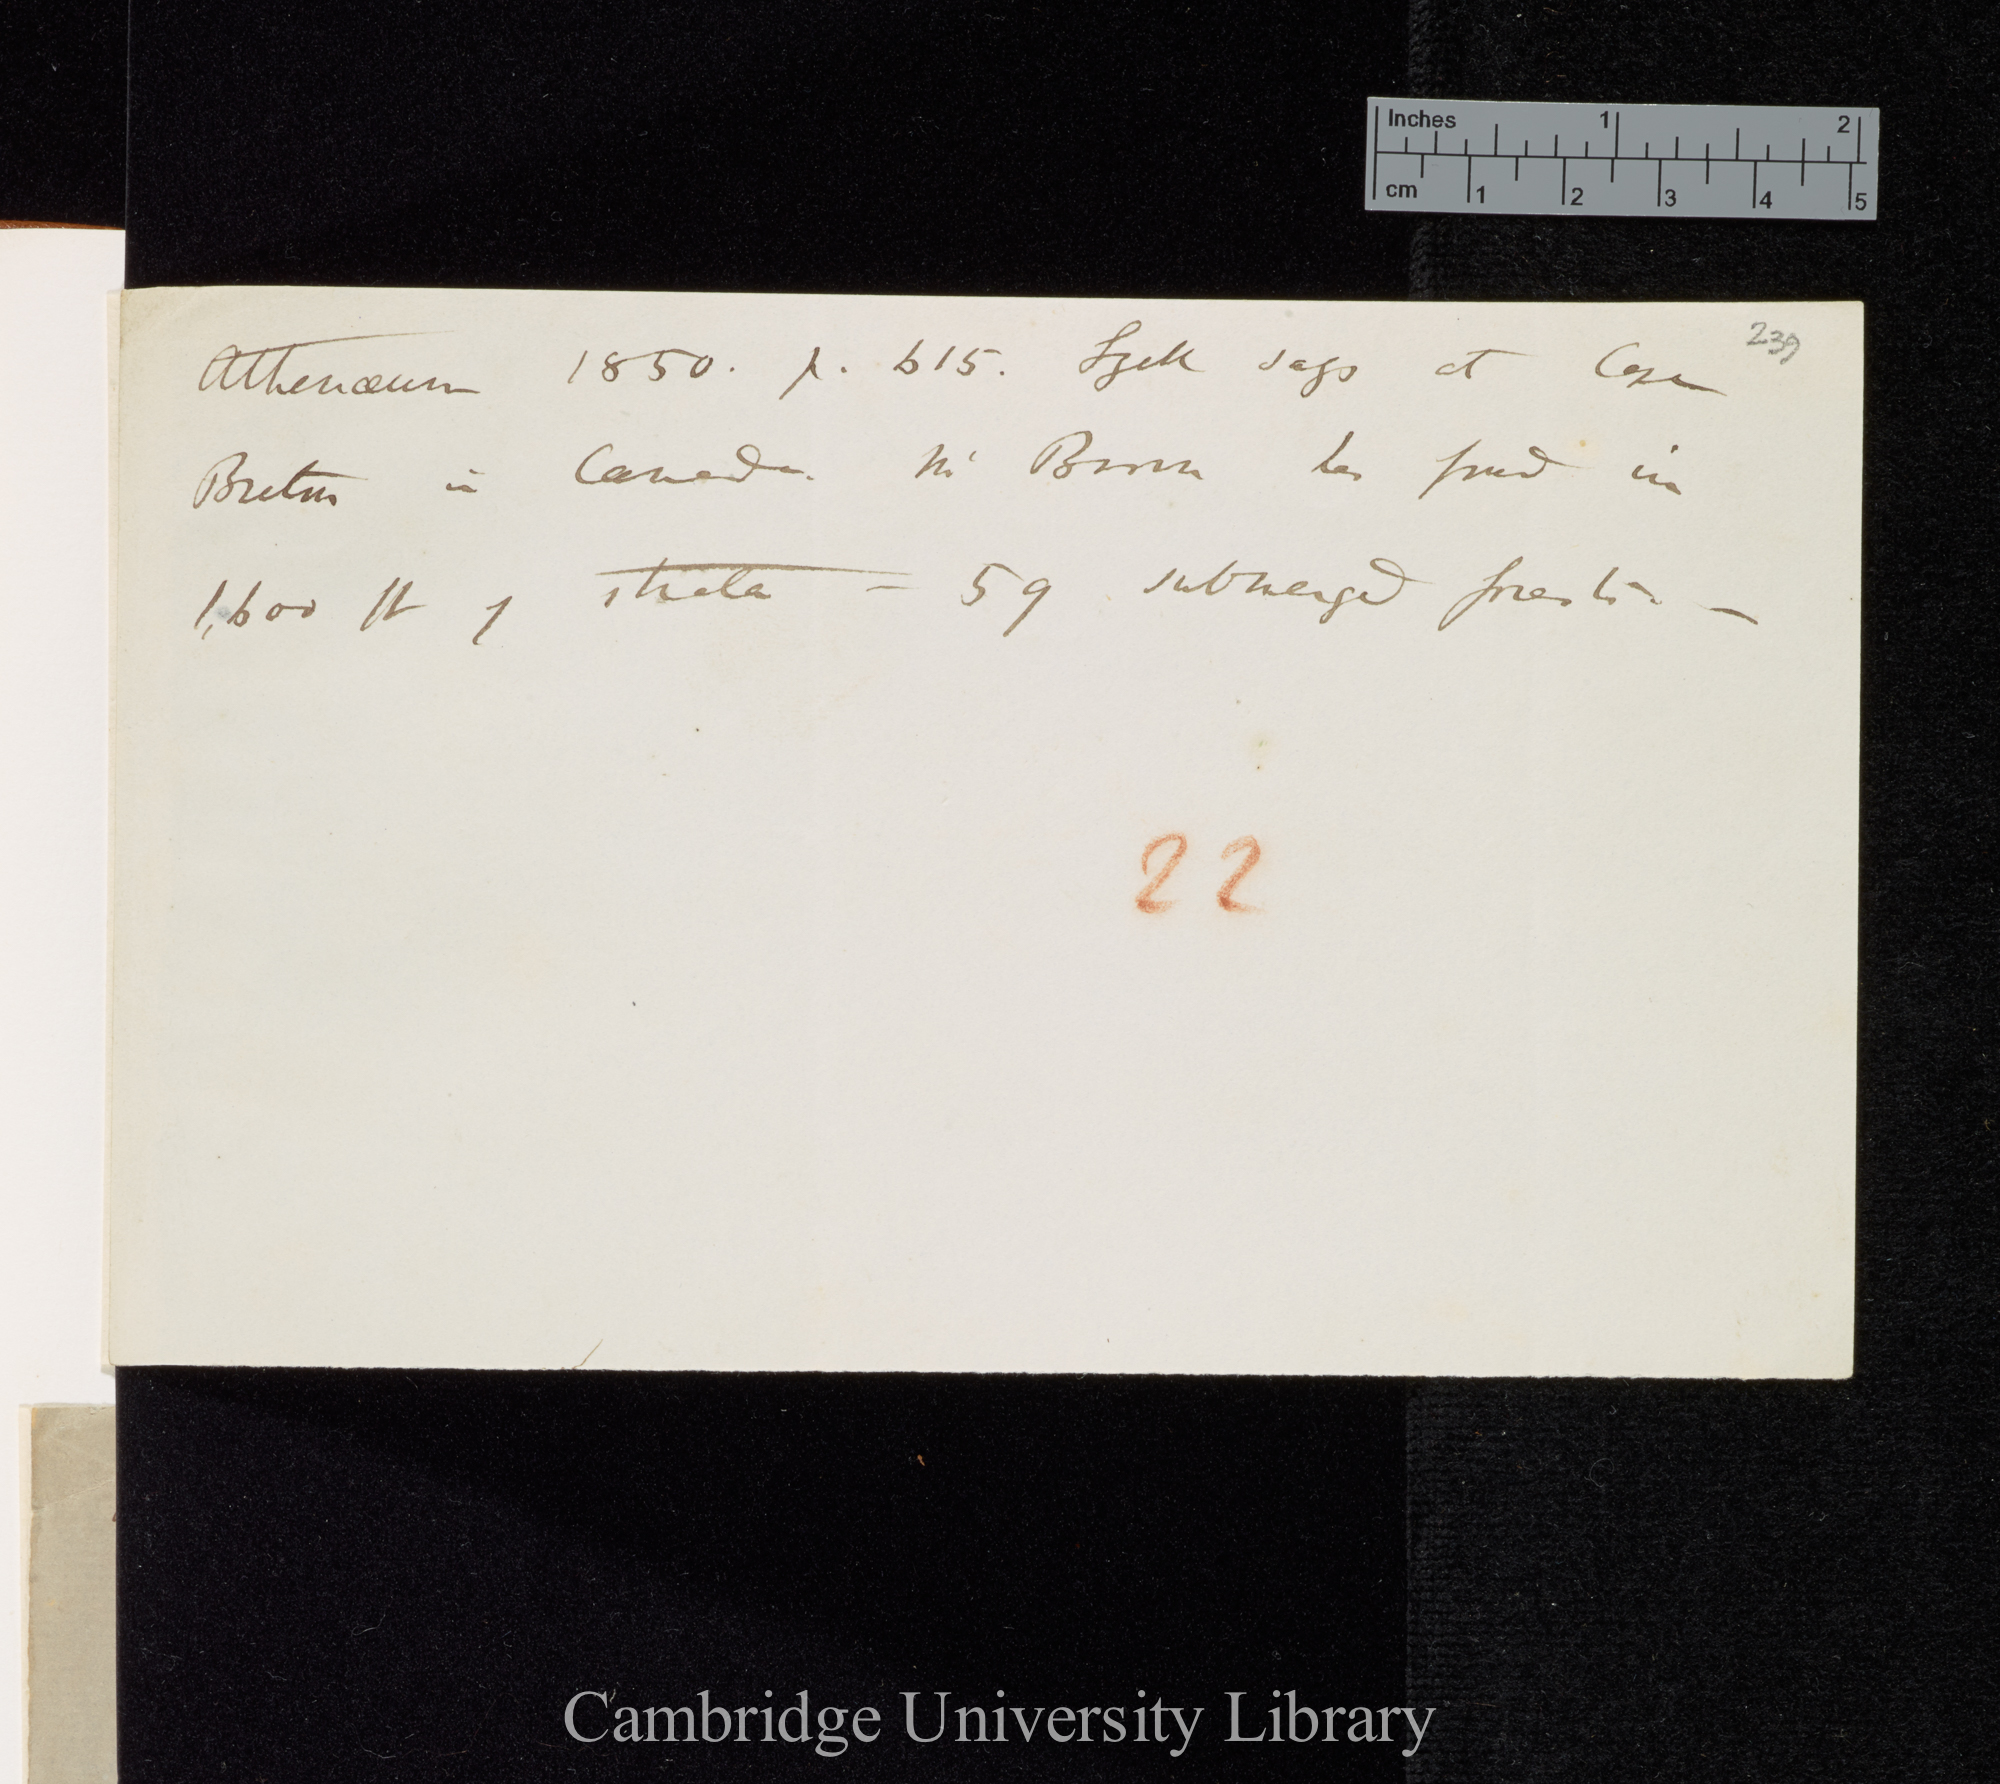 Inches 1 2
cm 1 2 3 4 5
239
Athenæum 1850. p. 615. Lyell says at Cape
Breton in Canada. Mr Brown has found in
1,600 ft of strata — 59 submerged forests. —
22
Cambridge University Library